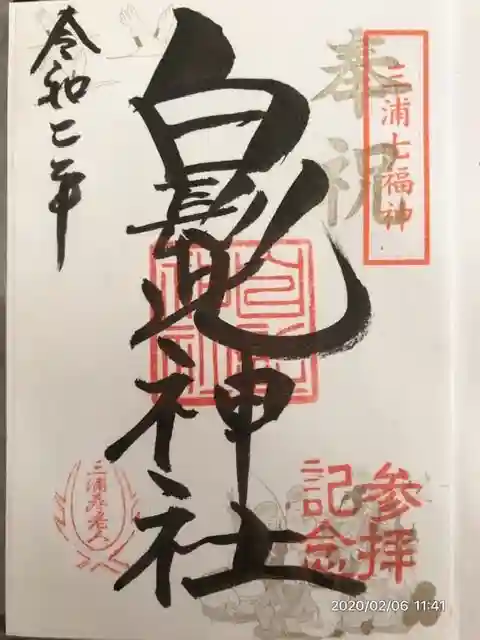 奉祝
三浦七福神
白髭神社
令和二年
三浦寿老人
参拝
記念
2020/02/06 11:41